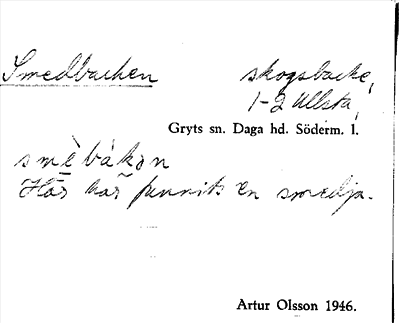 Smedbacken skogsbacke,
1-2 Ullsta,
Gryts sn. Daga hd. Söderm. l.
smèbákən
Här har funnits en smedja.
Artur Olsson 1946.